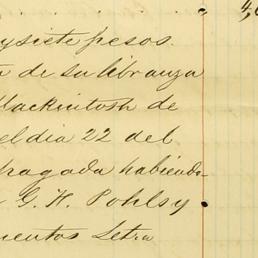 ysiete pesos.
4,
de su libranza
Mackintosh de
el dia 22 del
pagada habiendo
G. H. Pohls y
cientos Letra